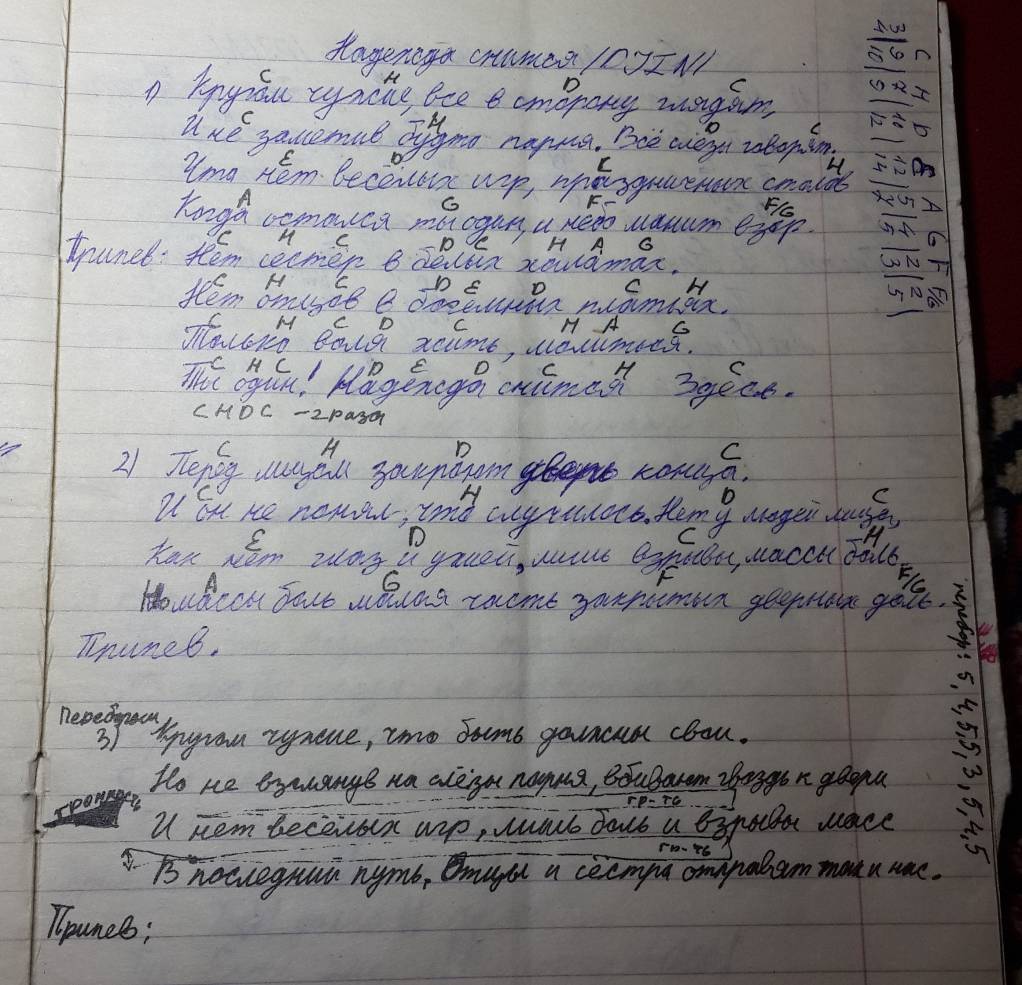 Надежда снится (DJIN)
C H D C
1) Кругом чужие, все в сторону глядят,
C H D C
И не заметив будто парня. Всё слёзы говорят.
E D C H
Что нет весёлых игр, праздничных столов
A G F F/G
Когда остался ты один, и небо манит взор.
C H C D C H A G
Припев: Нет сестёр в белых халатах.
C H C D E D C H
Нет отцов в богемных платьях.
C H C D C H A G
Только воля жить, молиться.
C H C D E D C H C
Ты один! Надежда снится Здесь.
C H D C - 2 раза
C H D C
2) Перед лицом закроют дверь конца.
C H D C
И он не понял, что случилось. Нет у людей лица,
E D C H
Как нет глаз и ушей, лишь взрывы, массы боль
A G F F/G
Но массы боль малая часть закрытых дверных доль.
Припев.
Переборы
3) Кругом чужие, что быть должны свои.
Но не взглянув на слёзы парня, вбивают гвоздь к двери
громкость
гр-ть
И нет весёлых игр, лишь боль и взрывы масс
гр-ть
В последний путь. Отцы и сёстра отправят так и нас.
Припев:
C H D E A G F F/G
3|9|7|10|12|5|4|2|2|
4|10|9|12|14|7|5|3|5|
5, 4, 5, 5, 3, 5, 4, 5